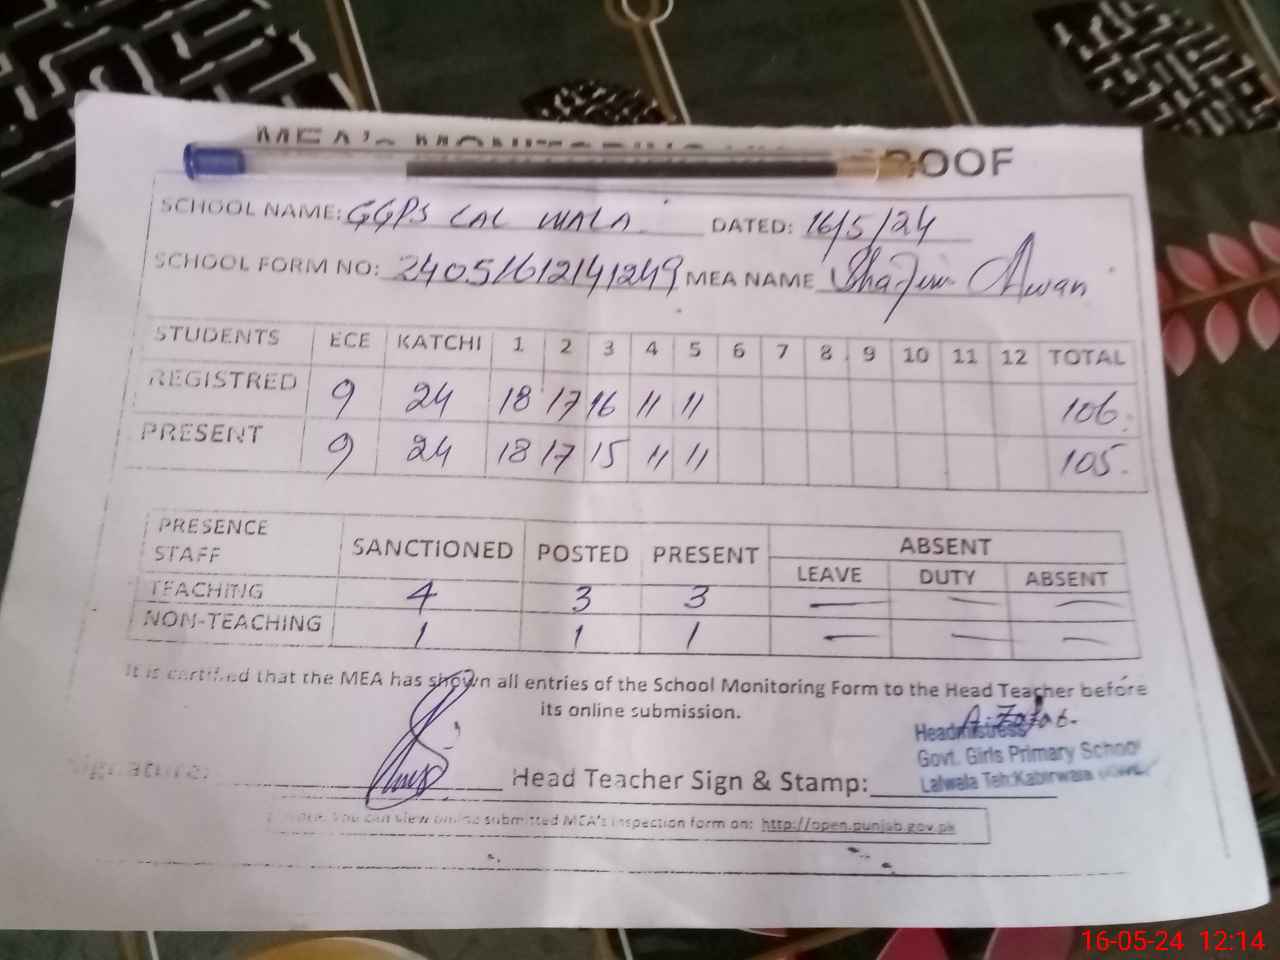 MEA's MONITORING PROOF
SCHOOL NAME: GGPS LAL WALA DATED: 16/5/24
SCHOOL FORM NO: 24051612141249 MEA NAME Awan
STUDENTS ECE KATCHI 1 2 3 4 5 6 7 8 9 10 11 12 TOTAL
REGISTRED 9 24 18 17 16 11 11 106
PRESENT 9 24 18 17 15 11 11 105
PRESENCE STAFF SANCTIONED POSTED PRESENT ABSENT
LEAVE DUTY ABSENT
TEACHING 4 3 3 — — —
NON-TEACHING 1 1 1 — — —
It is certified that the MEA has shown all entries of the School Monitoring Form to the Head Teacher before
its online submission.
Headmistress
Govt. Girls Primary School
Lalwala Teh:Kabirwala
Signature: Head Teacher Sign & Stamp:
you can view online submitted MEA's inspection form on: http://open.punjab.gov.pk
16-05-24 12:14